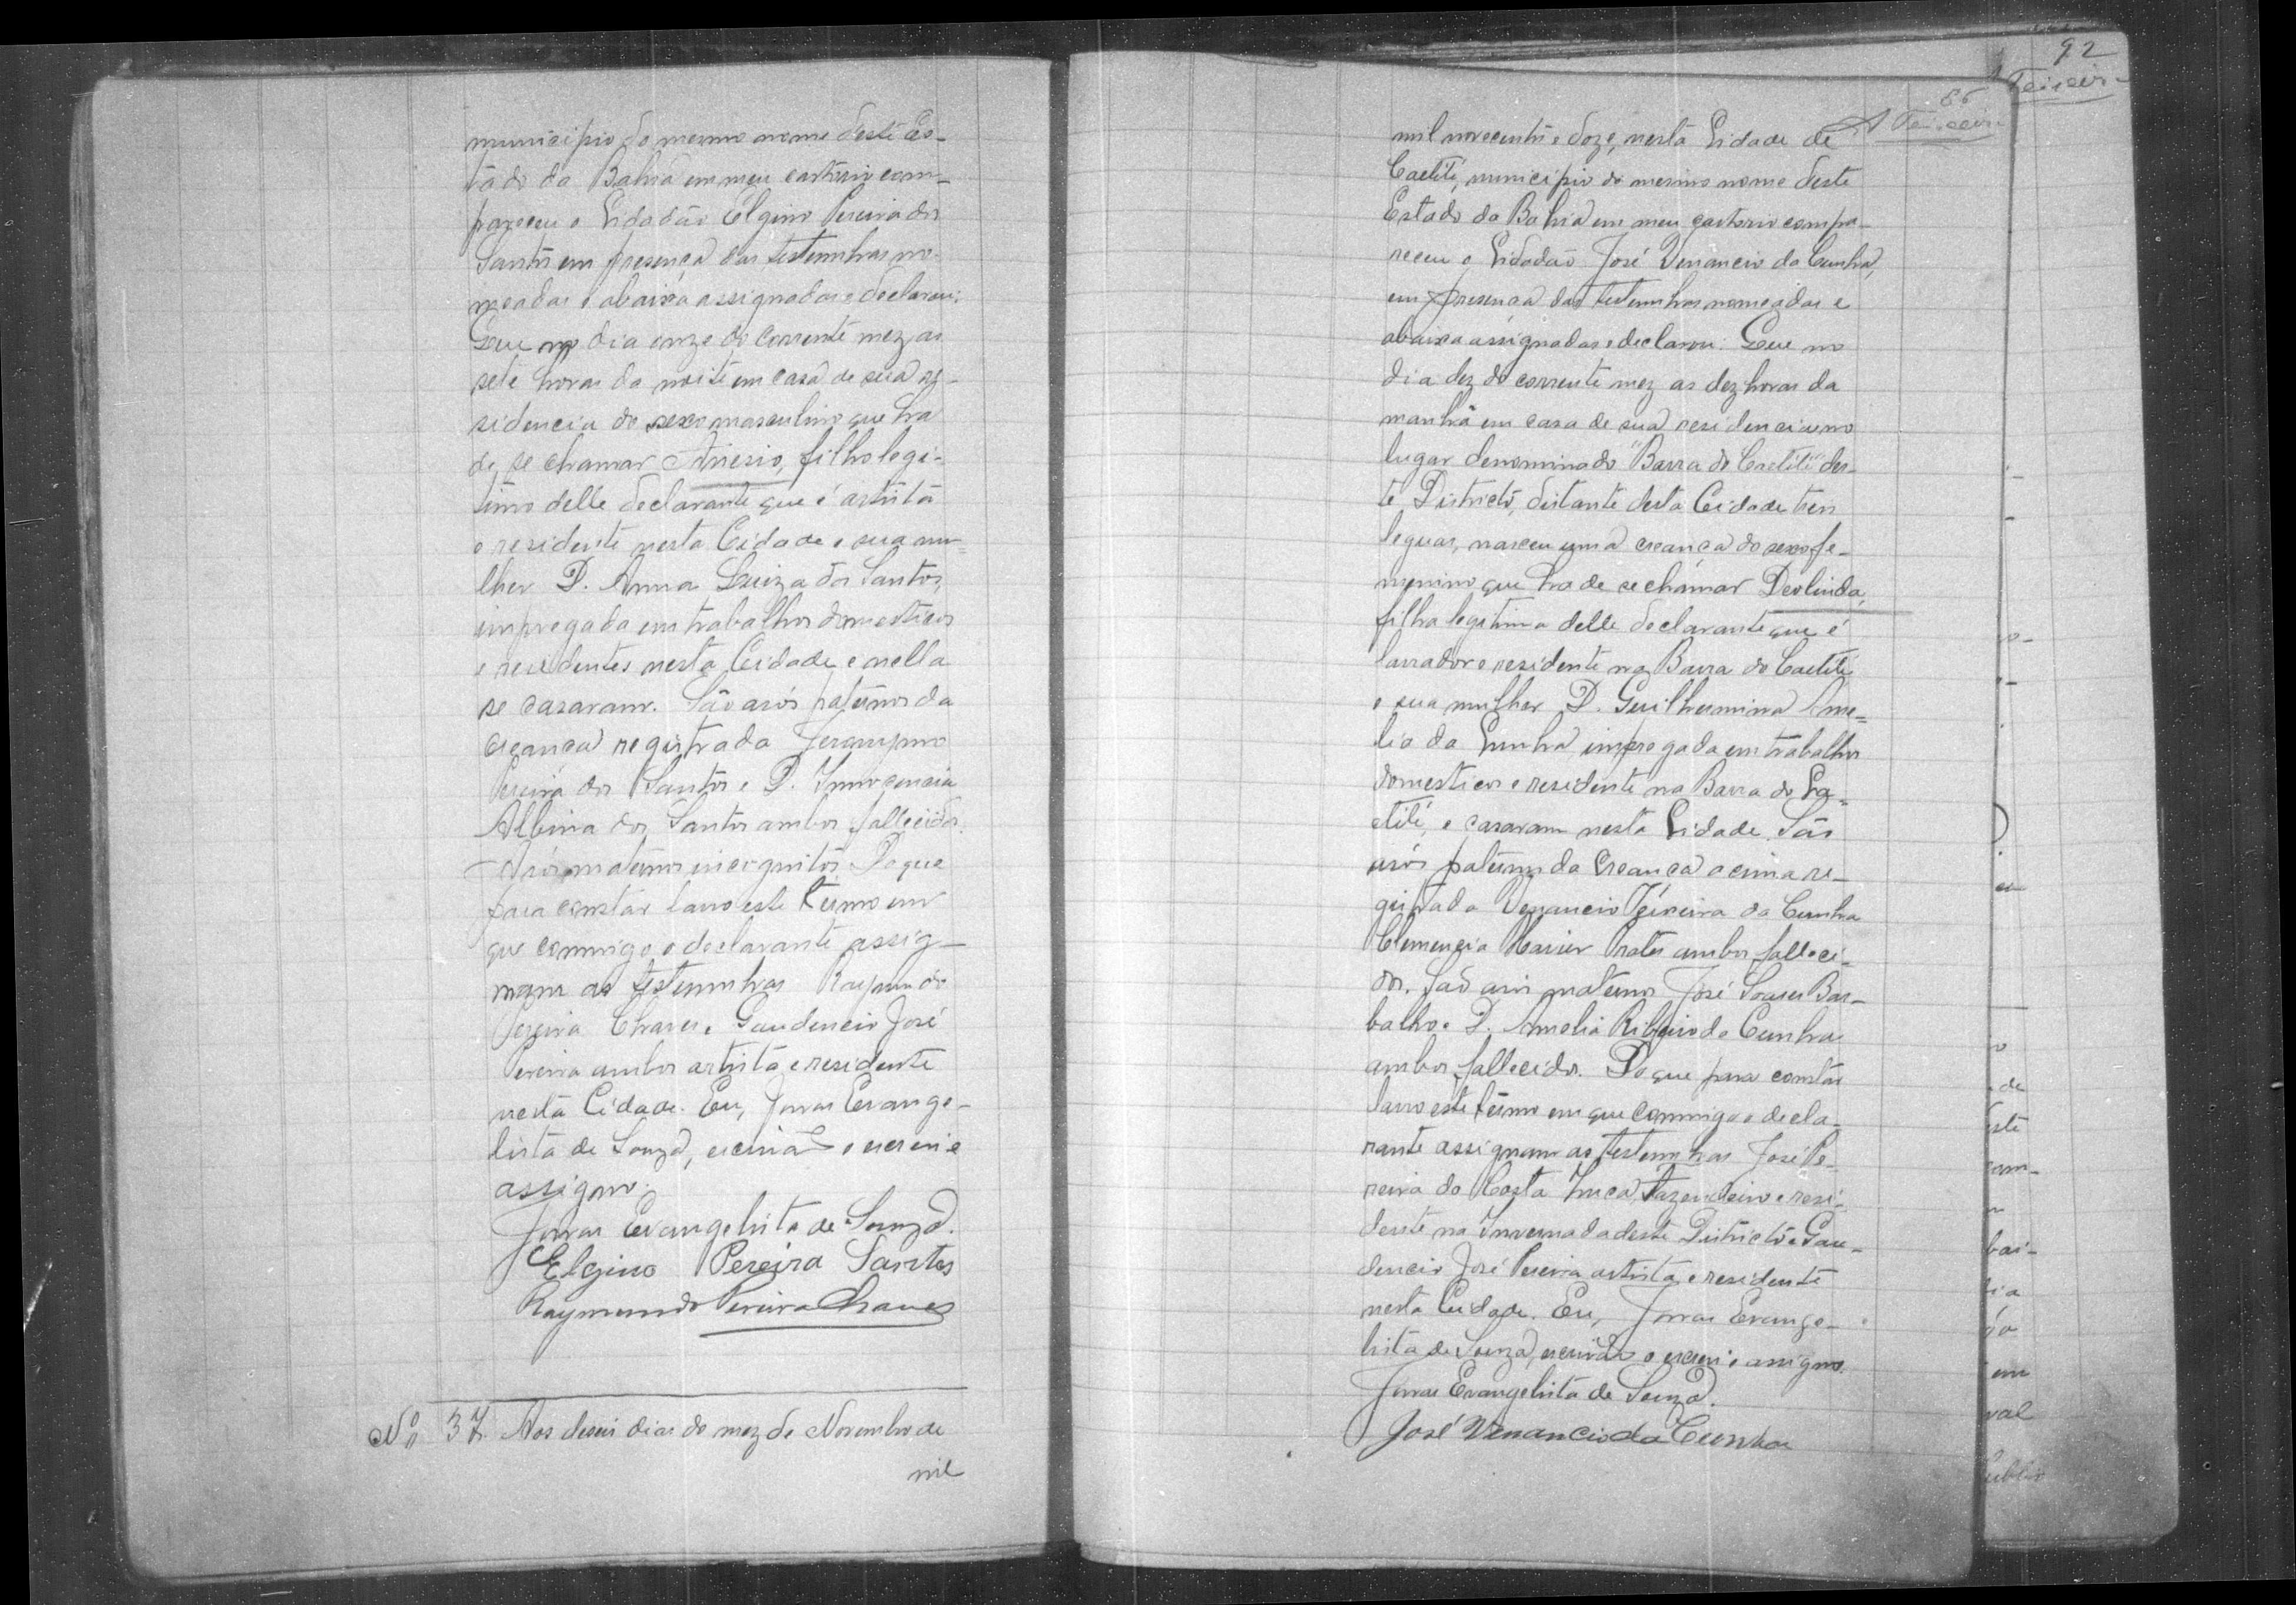 municipio do mesmo nome deste Es-
tado da Bahia em meu cartorio com-
pareceu o Cidadão Elgino Pereira dos
Santos em presença das testemunhas no-
meadas e abaixo assignadas e declarou:
Que no dia onze do corrente mez as
sete horas da noite em casa de sua re-
sidencia do sexo masculino que ha
de se chamar Anesio, filho legi-
timo delle declarante que é artista
e residente nesta Cidade e sua mu-
lher D. Anna Luiza dos Santos,
impregada em trabalhos domesticos
e residentes nesta Cidade e nella
se casaram. São avós paternos da
creança registrada Jeronymo
Pereira dos Santos e D. Innocencia
Albina dos Santos ambos fallecidos.
Avós maternos incognitos. Do que
para constar lavro este termo em
que commigo o declarante assig-
nam as testemunhas Raymundo
Pereira Chaves e Gaudencio José
Pereira ambos artista e residente
nesta Cidade. Eu, Jonas Evange-
lista de Souza, escrivão o escrevi e
assigno.
Jonas Evangelista de Souza.
Elgino Pereira Santos
Raymundo Pereira Chaves
No 37. Aos deseis dias do mez de Novembro de
mil
92
Teixeir
86
A Teixeira
mil novecentos e doze, nesta Cidade de
Caetité, municipio do mesmo nome deste
Estado da Bahia em meu cartorio compa-
receu o Cidadão José Venancio da Cunha,
em presença das testemunhas nomeadas e
abaixo assignadas e declarou: Que no
dia dez do corrente mez as dez horas da
manhã em casa de sua residencia no
lugar denominado "Barra do Caetité" des-
te Districto, distante desta Cidade tres
leguas, nasceu uma creança do sexo fe-
menino que ha de se chamar Deolinda,
filha legitima delle declarante que é
lavrador e residente na Barra do Caetité
e sua mulher D. Guilhermina Ame-
lia da Cunha, impregada em trabalhos
domesticos e residente na Barra do Ca-
etité, e casaram nesta Cidade. São
avós paternos da creança acima re-
gistrada Venancio Teixeira da Cunha
Clemencia Xavier Prates ambos falleci-
dos. São avós maternos José Soares Bar-
balho e D. Amelia Ribeiro da Cunha
ambos fallecidos. Do que para constar
lavro este termo em que commigo o decla-
rante assignam as testemunhas José Pe-
reira da Costa fazendeiro e resi-
dente na Invernada deste Districto e Gau-
dencio José Pereira artista e residente
nesta Cidade. Eu, Jonas Evange-
lista de Souza, escrivão o escrevi e assigno.
Jonas Evangelista de Souza.
José Venancio da Cunha